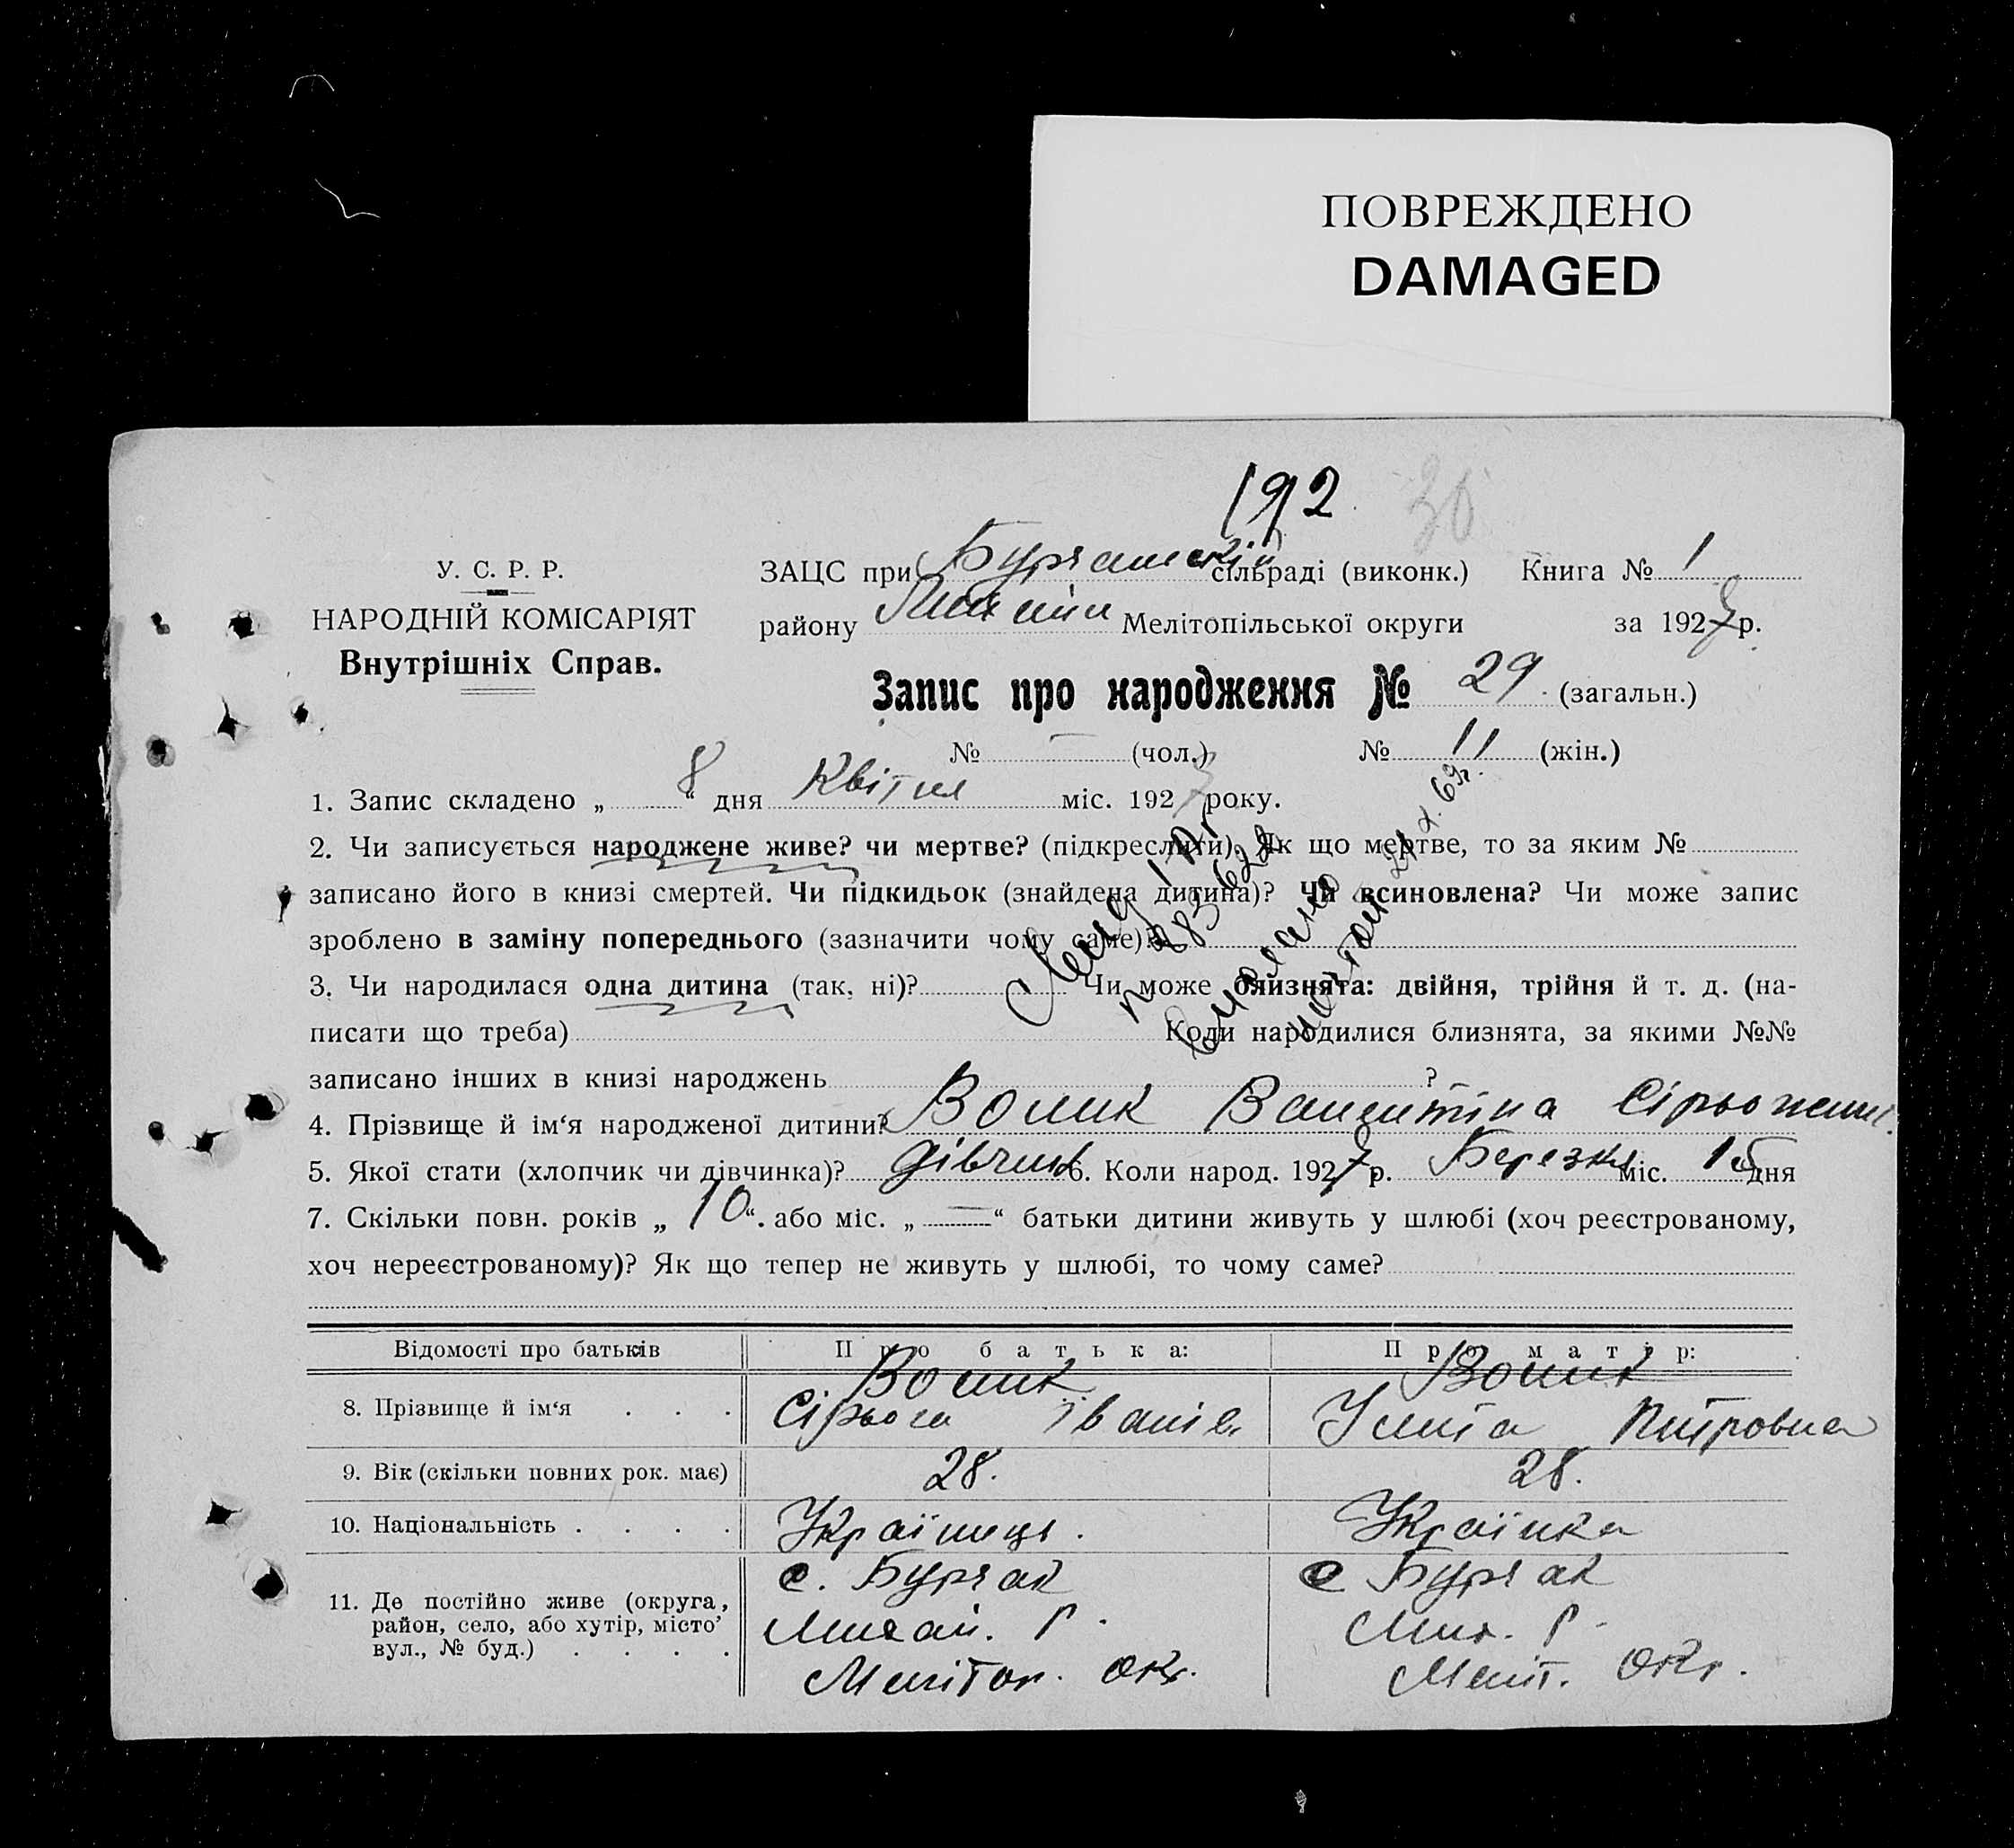 ПОВРЕЖДЕНО
DAMAGED
192 36
У. С. Р. Р.
НАРОДНІЙ КОМІСАРІЯТ
Внутрішніх Справ.
ЗАЦС при сільраді (виконк.) Книга № 1
району Мелітопільської округи за 1927 р.
Запис про народження № 29 (загальн.)
№ — (чол.) № 11 (жін.)
1. Запис складено „ 8 “ дня Квітня міс. 1927 року.
2. Чи записується народжене живе? чи мертве? (підкреслити). Як що мертве, то за яким №
записано його в книзі смертей. Чи підкидьок (знайдена дитина)? Чи всиновлена? Чи може запис
зроблено в заміну попереднього (зазначити чому саме)?
3. Чи народилася одна дитина (так, ні)? Чи може близнята: двійня, трійня й т. д. (на-
писати що треба) Коли народилися близнята, за якими №№
записано інших в книзі народжень ?
4. Прізвище й ім‘я народженої дитини? Волик Валентіна
5. Якої стати (хлопчик чи дівчинка)? дівчин 6. Коли народ. 1927 р. Березня міс. 15 дня
7. Скільки повн. років „ 10 “. або міс. „ — “ батьки дитини живуть у шлюбі (хоч реєстрованому,
хоч нереєстрованому)? Як що тепер не живуть у шлюбі, то чому саме?
Відомості про батьків Про батька: Про матір:
Волик Волик
8. Прізвище й ім‘я . . . Сірьога Іванів. Петровна
9. Вік (скільки повних рок. має) 28. 28.
10. Національність . . . . Українець. Українка
с. Бурчак с Бурчак
11. Де постійно живе (округа, район, село, або хутір, місто, вул., № буд.) . . . . Михай. Р. Мих. Р.
Мелітоп. окр. Меліт. окр.